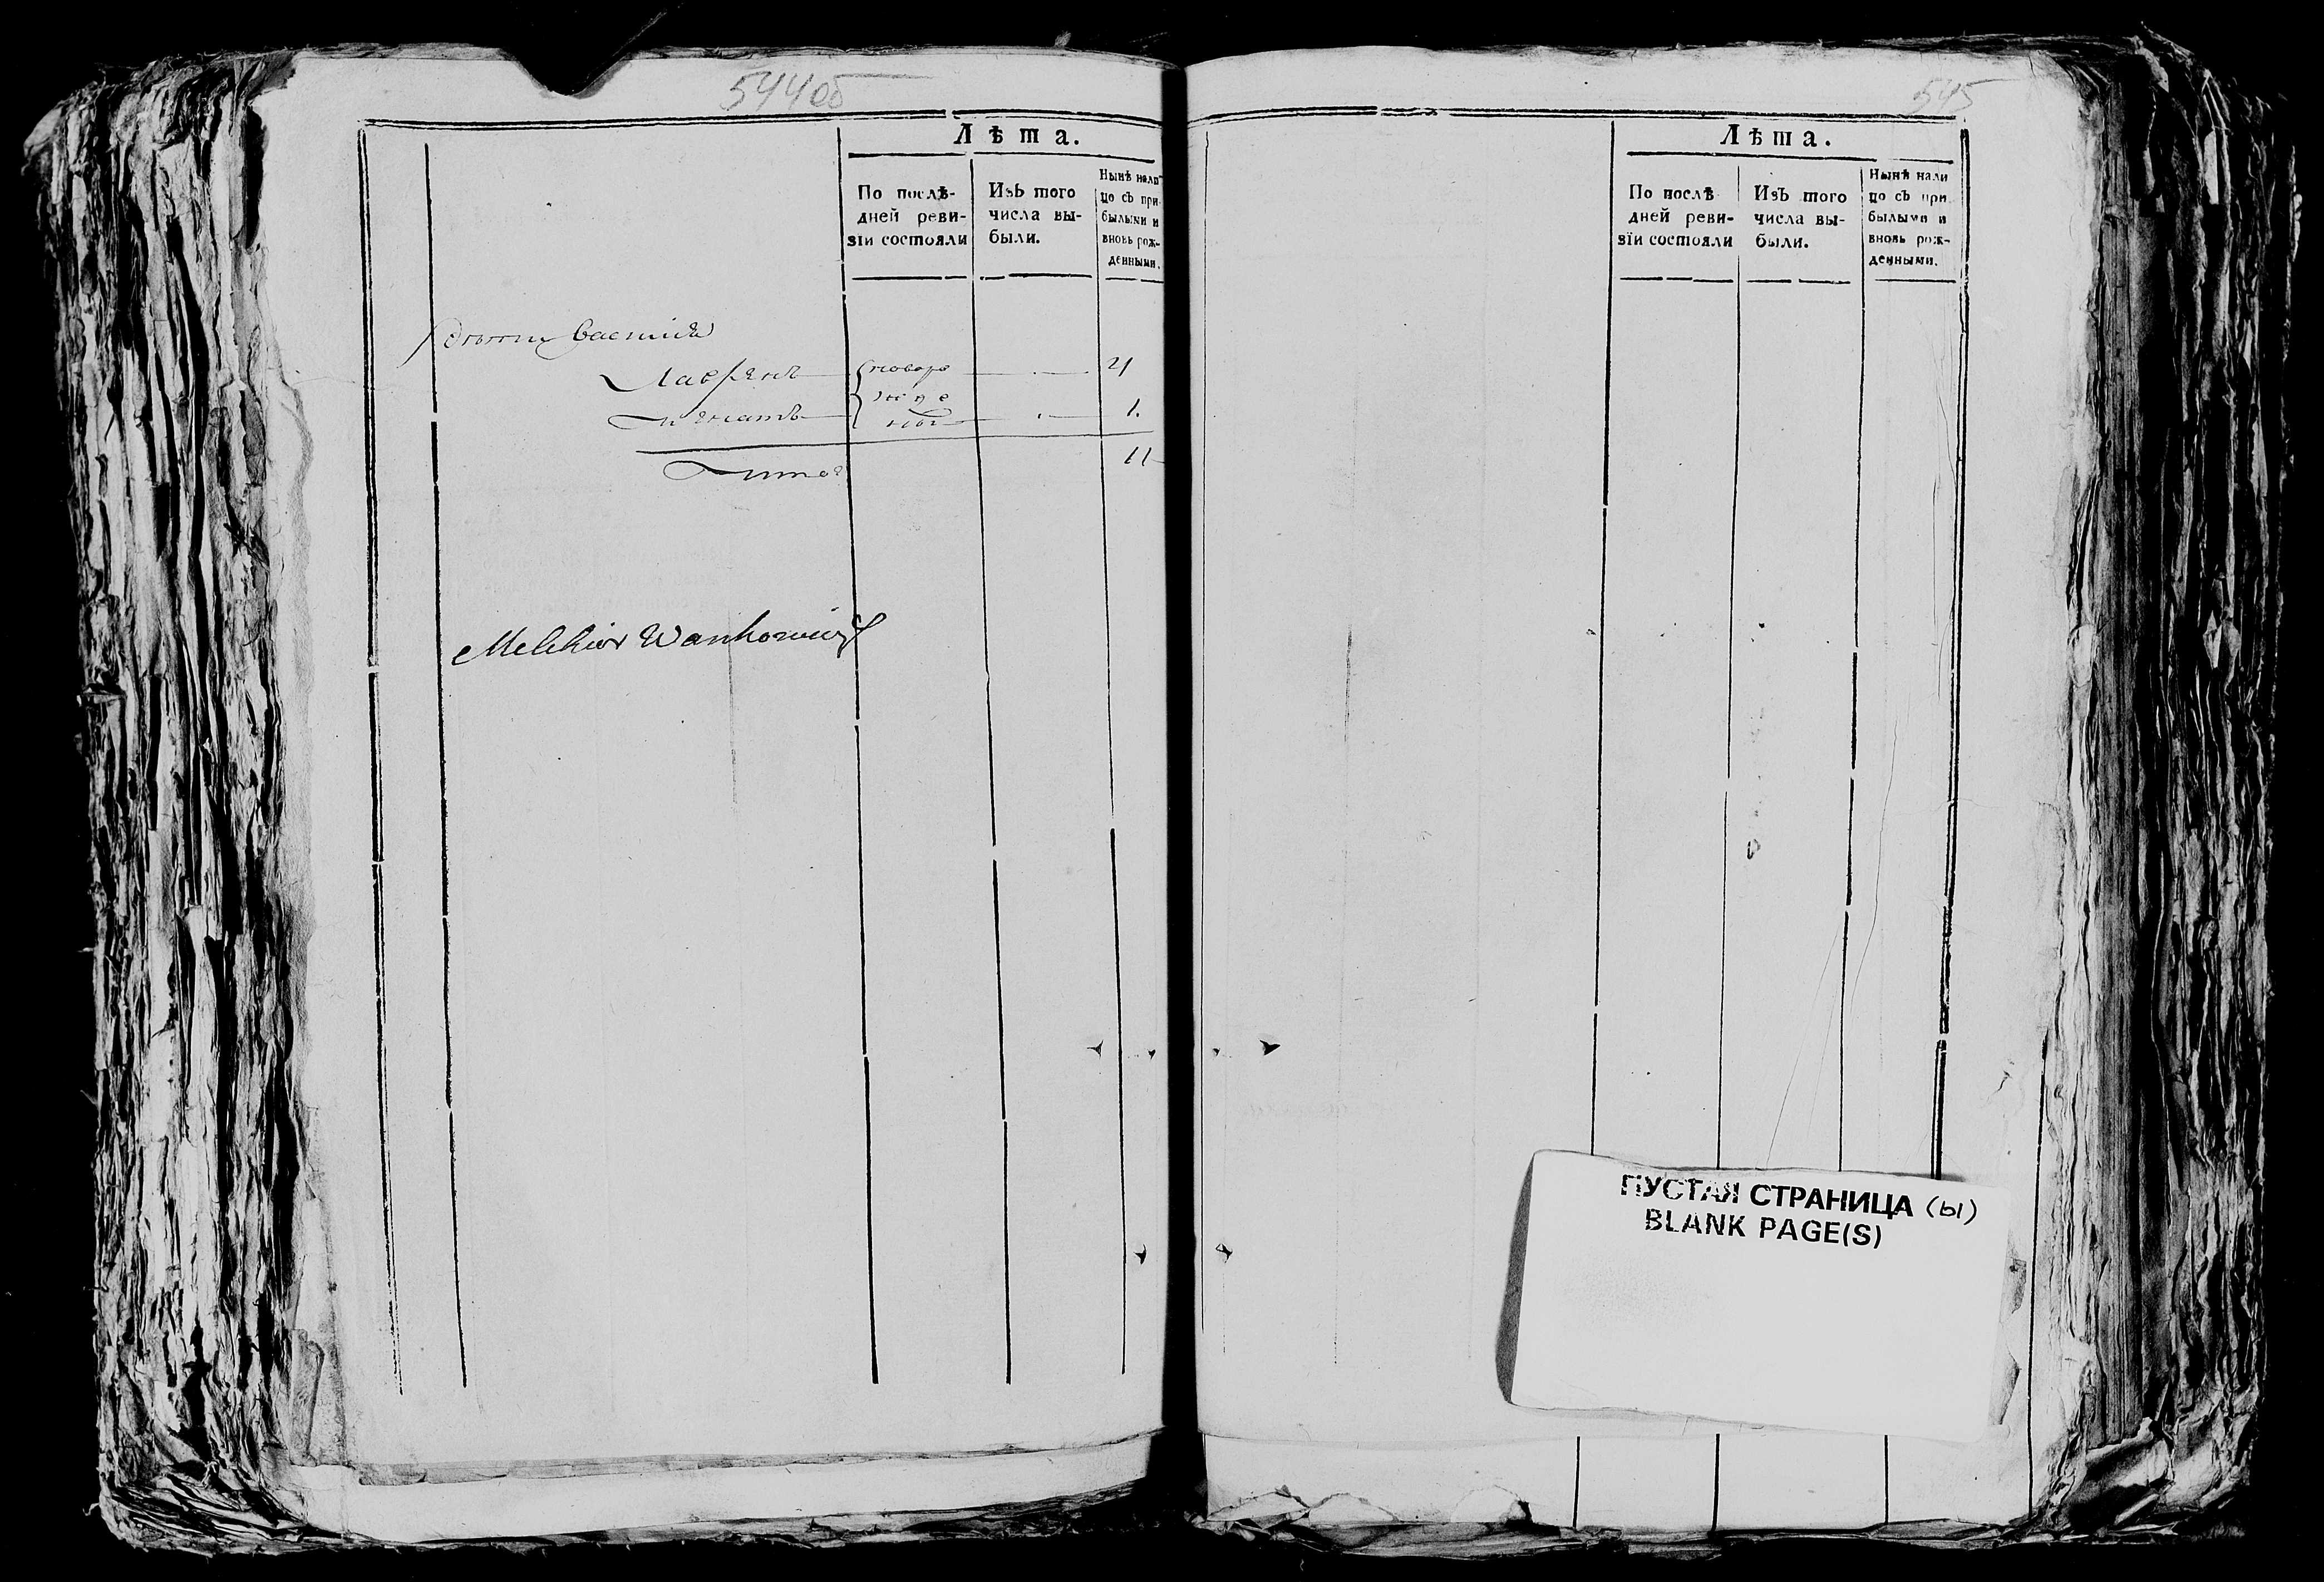 544об
Лѣта.
По послѣ-
дней реви-
зіи состояли
Изъ того
числа вы-
были.
Нынѣ нали
цо съ при
былыми и
вновь рож-
денными.
дѣти
новоро
4
жде
1.
ны
11
Melchior Wankowicz
545
Лѣта.
По послѣ
дней реви-
зїи состояли
Изъ того
числа вы-
были.
Нынѣ нали
цо съ при
былыми и
вновь рож-
денными.
ПУСТАЯ СТРАНИЦА (Ы)
BLANK PAGE(S)